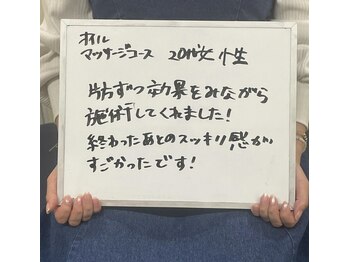 オイル
マッサージコース 20代女性
片方ずつ効果をみながら
施術してくれました!
終わったあとのスッキリ感が
すごかったです!